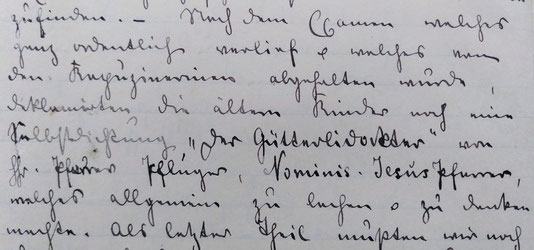 zufinden. – Nach dem Examen welches
ganz ordentlich verlief & welches von
den Kapuzinerinen abgehalten wurde,
deklamirten die ältern Kinder noch eine
Selbstdichtung „Der Gütterlidokter" von
Hr. Pfarrer Pflüger, Nominis-Jesus Pfarrer,
welches allgemein zu lachen & zu denken
machte. Als letzter Theil mußten wir noch